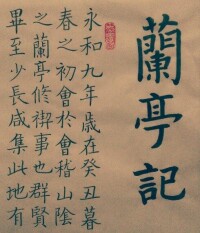 蘭亭記
永和九年歲在癸丑暮
春之初會於會稽山陰
之蘭亭修禊事也群賢
畢至少長咸集此地有